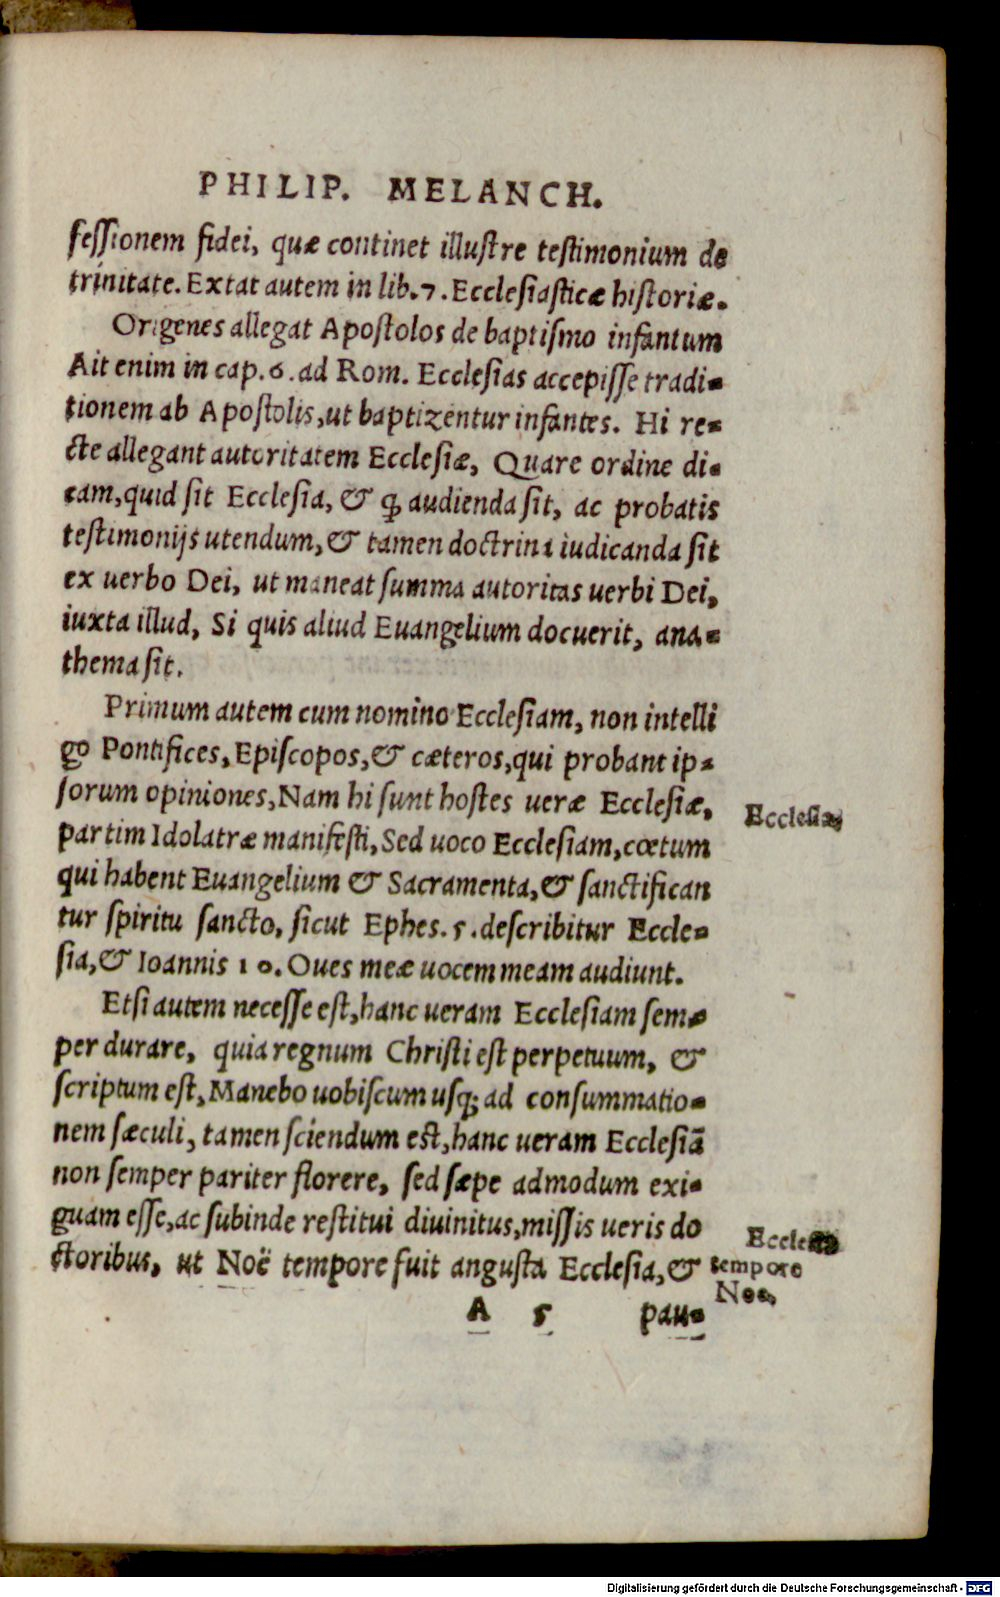 PHILIP. MELANCH.
feſſionem fidei, quæ continet illuſtre teſtimonium de
trinitate. Extat autem in lib. 7. Eccleſiaſticæ hiſtoriæ.
Origenes allegat Apoſtolos de baptiſmo infantum
Ait enim in cap. 6. ad Rom. Eccleſias accepiſſe tradi-
tionem ab Apoſtolis, ut baptizentur infantes. Hi re-
cte allegant autoritatem Eccleſiæ, Quare ordine di-
cam, quid ſit Eccleſia, & ꝙ audienda ſit, ac probatis
teſtimonijs utendum, & tamen doctrina iudicanda ſit
ex uerbo Dei, ut maneat ſumma autoritas uerbi Dei,
iuxta illud, Si quis aliud Euangelium docuerit, ana-
thema ſit.
Primum autem cum nomino Eccleſiam, non intelli
go Pontifices, Epiſcopos, & cæteros, qui probant ip-
ſorum opiniones, Nam hi ſunt hoſtes ueræ Eccleſiæ,
partim Idolatræ manifeſti, Sed uoco Eccleſiam, cœtum
qui habent Euangelium & Sacramenta, & ſanctifican
tur ſpiritu ſancto, ſicut Ephes. 5. deſcribitur Eccle-
ſia, & Ioannis 10. Oues meæ uocem meam audiunt.
Etſi autem neceſſe eſt, hanc ueram Eccleſiam ſem-
per durare, quia regnum Chriſti eſt perpetuum, &
ſcriptum eſt, Manebo uobiſcum uſq; ad conſummatio-
nem ſæculi, tamen ſciendum eſt, hanc ueram Eccleſiã
non ſemper pariter florere, ſed ſæpe admodum exi-
guam eſſe, ac ſubinde reſtitui diuinitus, miſſis ueris do
ctoribus, ut Noë tempore fuit anguſta Eccleſia, &
A 5 pau-
Eccleſia,
tempore
Noe,
Digitalisierung gefördert durch die Deutsche Forschungsgemeinschaft - DFG